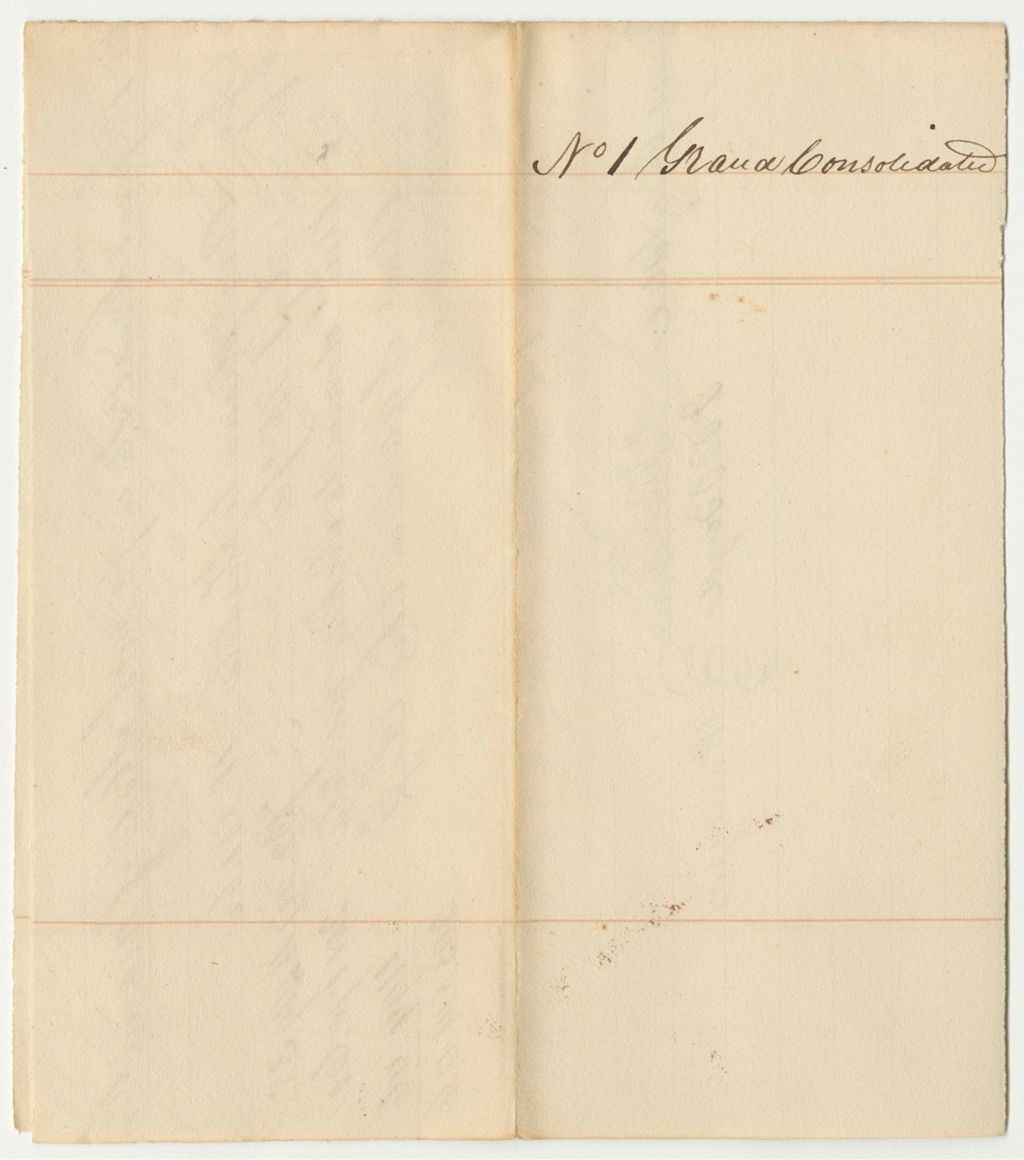 No 1 Grand Consolidated